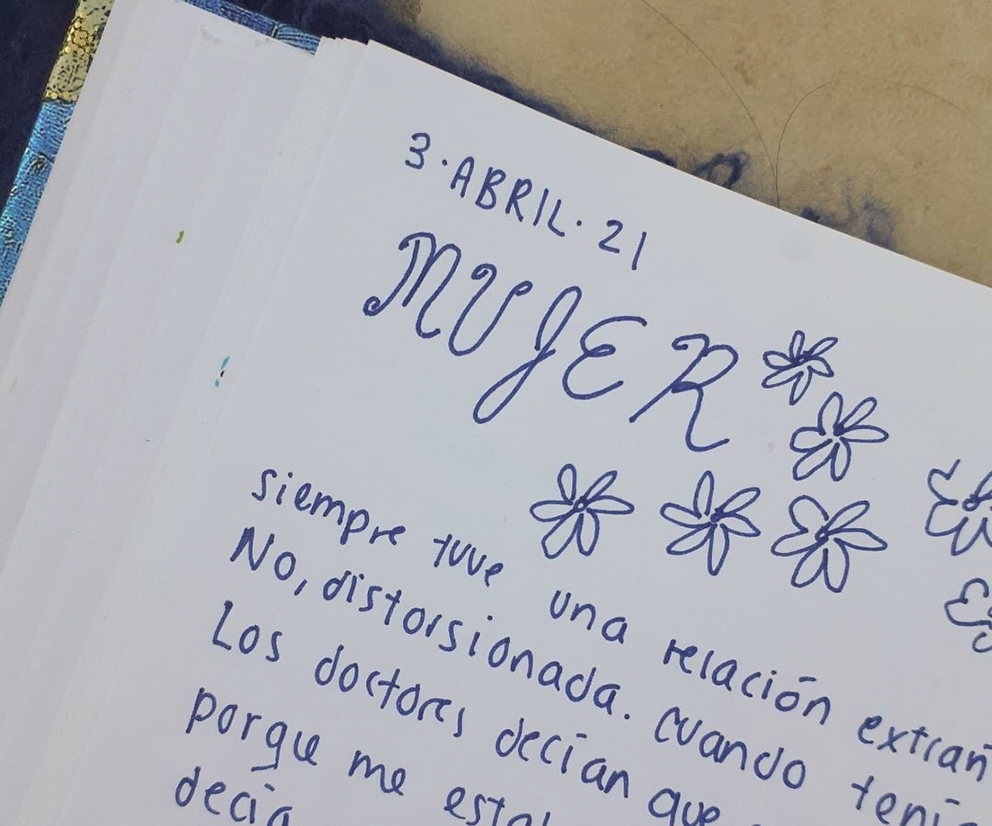 3·ABRIL·21
MUJER
siempre tuve una relación extrañ
No, distorsionada. Cuando tení
Los doctores decían que
porque me estab
decía